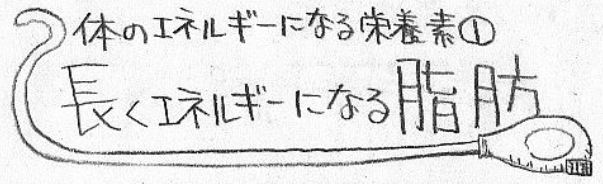 体のエネルギーになる栄養素①
長くエネルギーになる脂肪